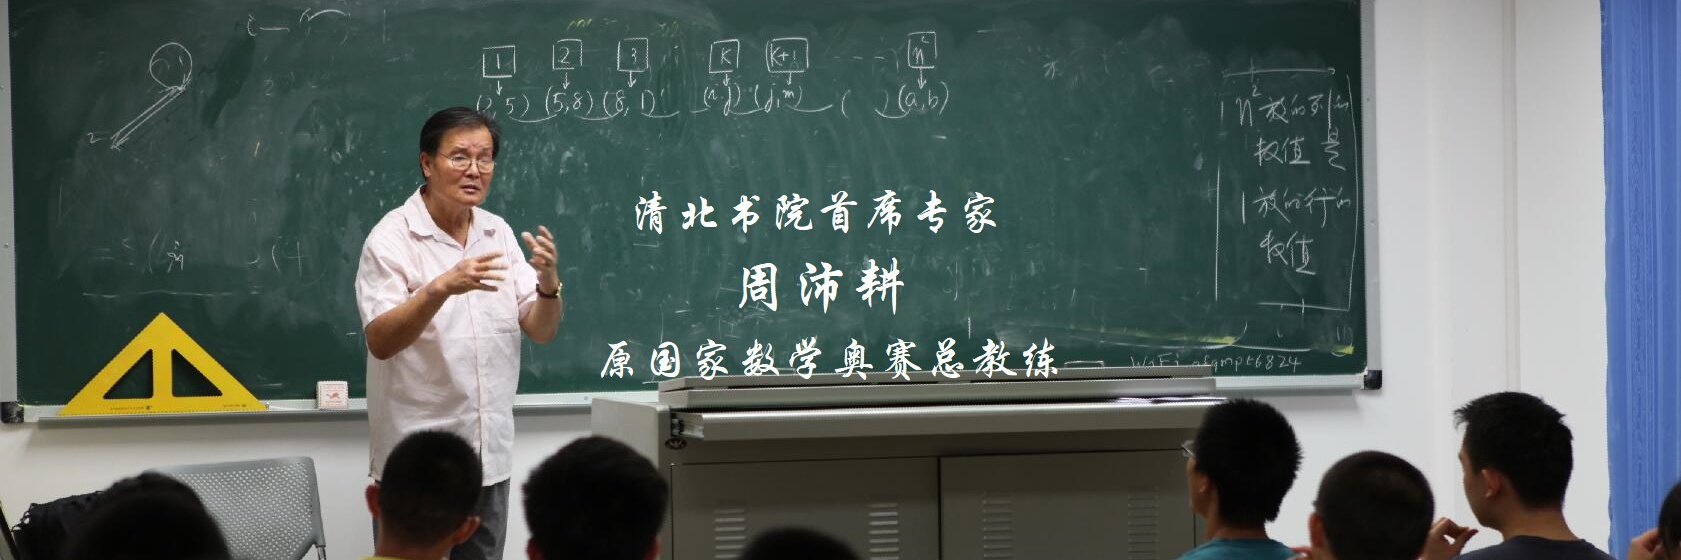 1 2 3 K K+1 --- n²
(2,5) (5,8) (8,1) (n,j) (j,m) ( ) (a,b)
n²放的列的
数值是
1放的行的
数值
清北书院首席专家
周沛耕
原国家数学奥赛总教练